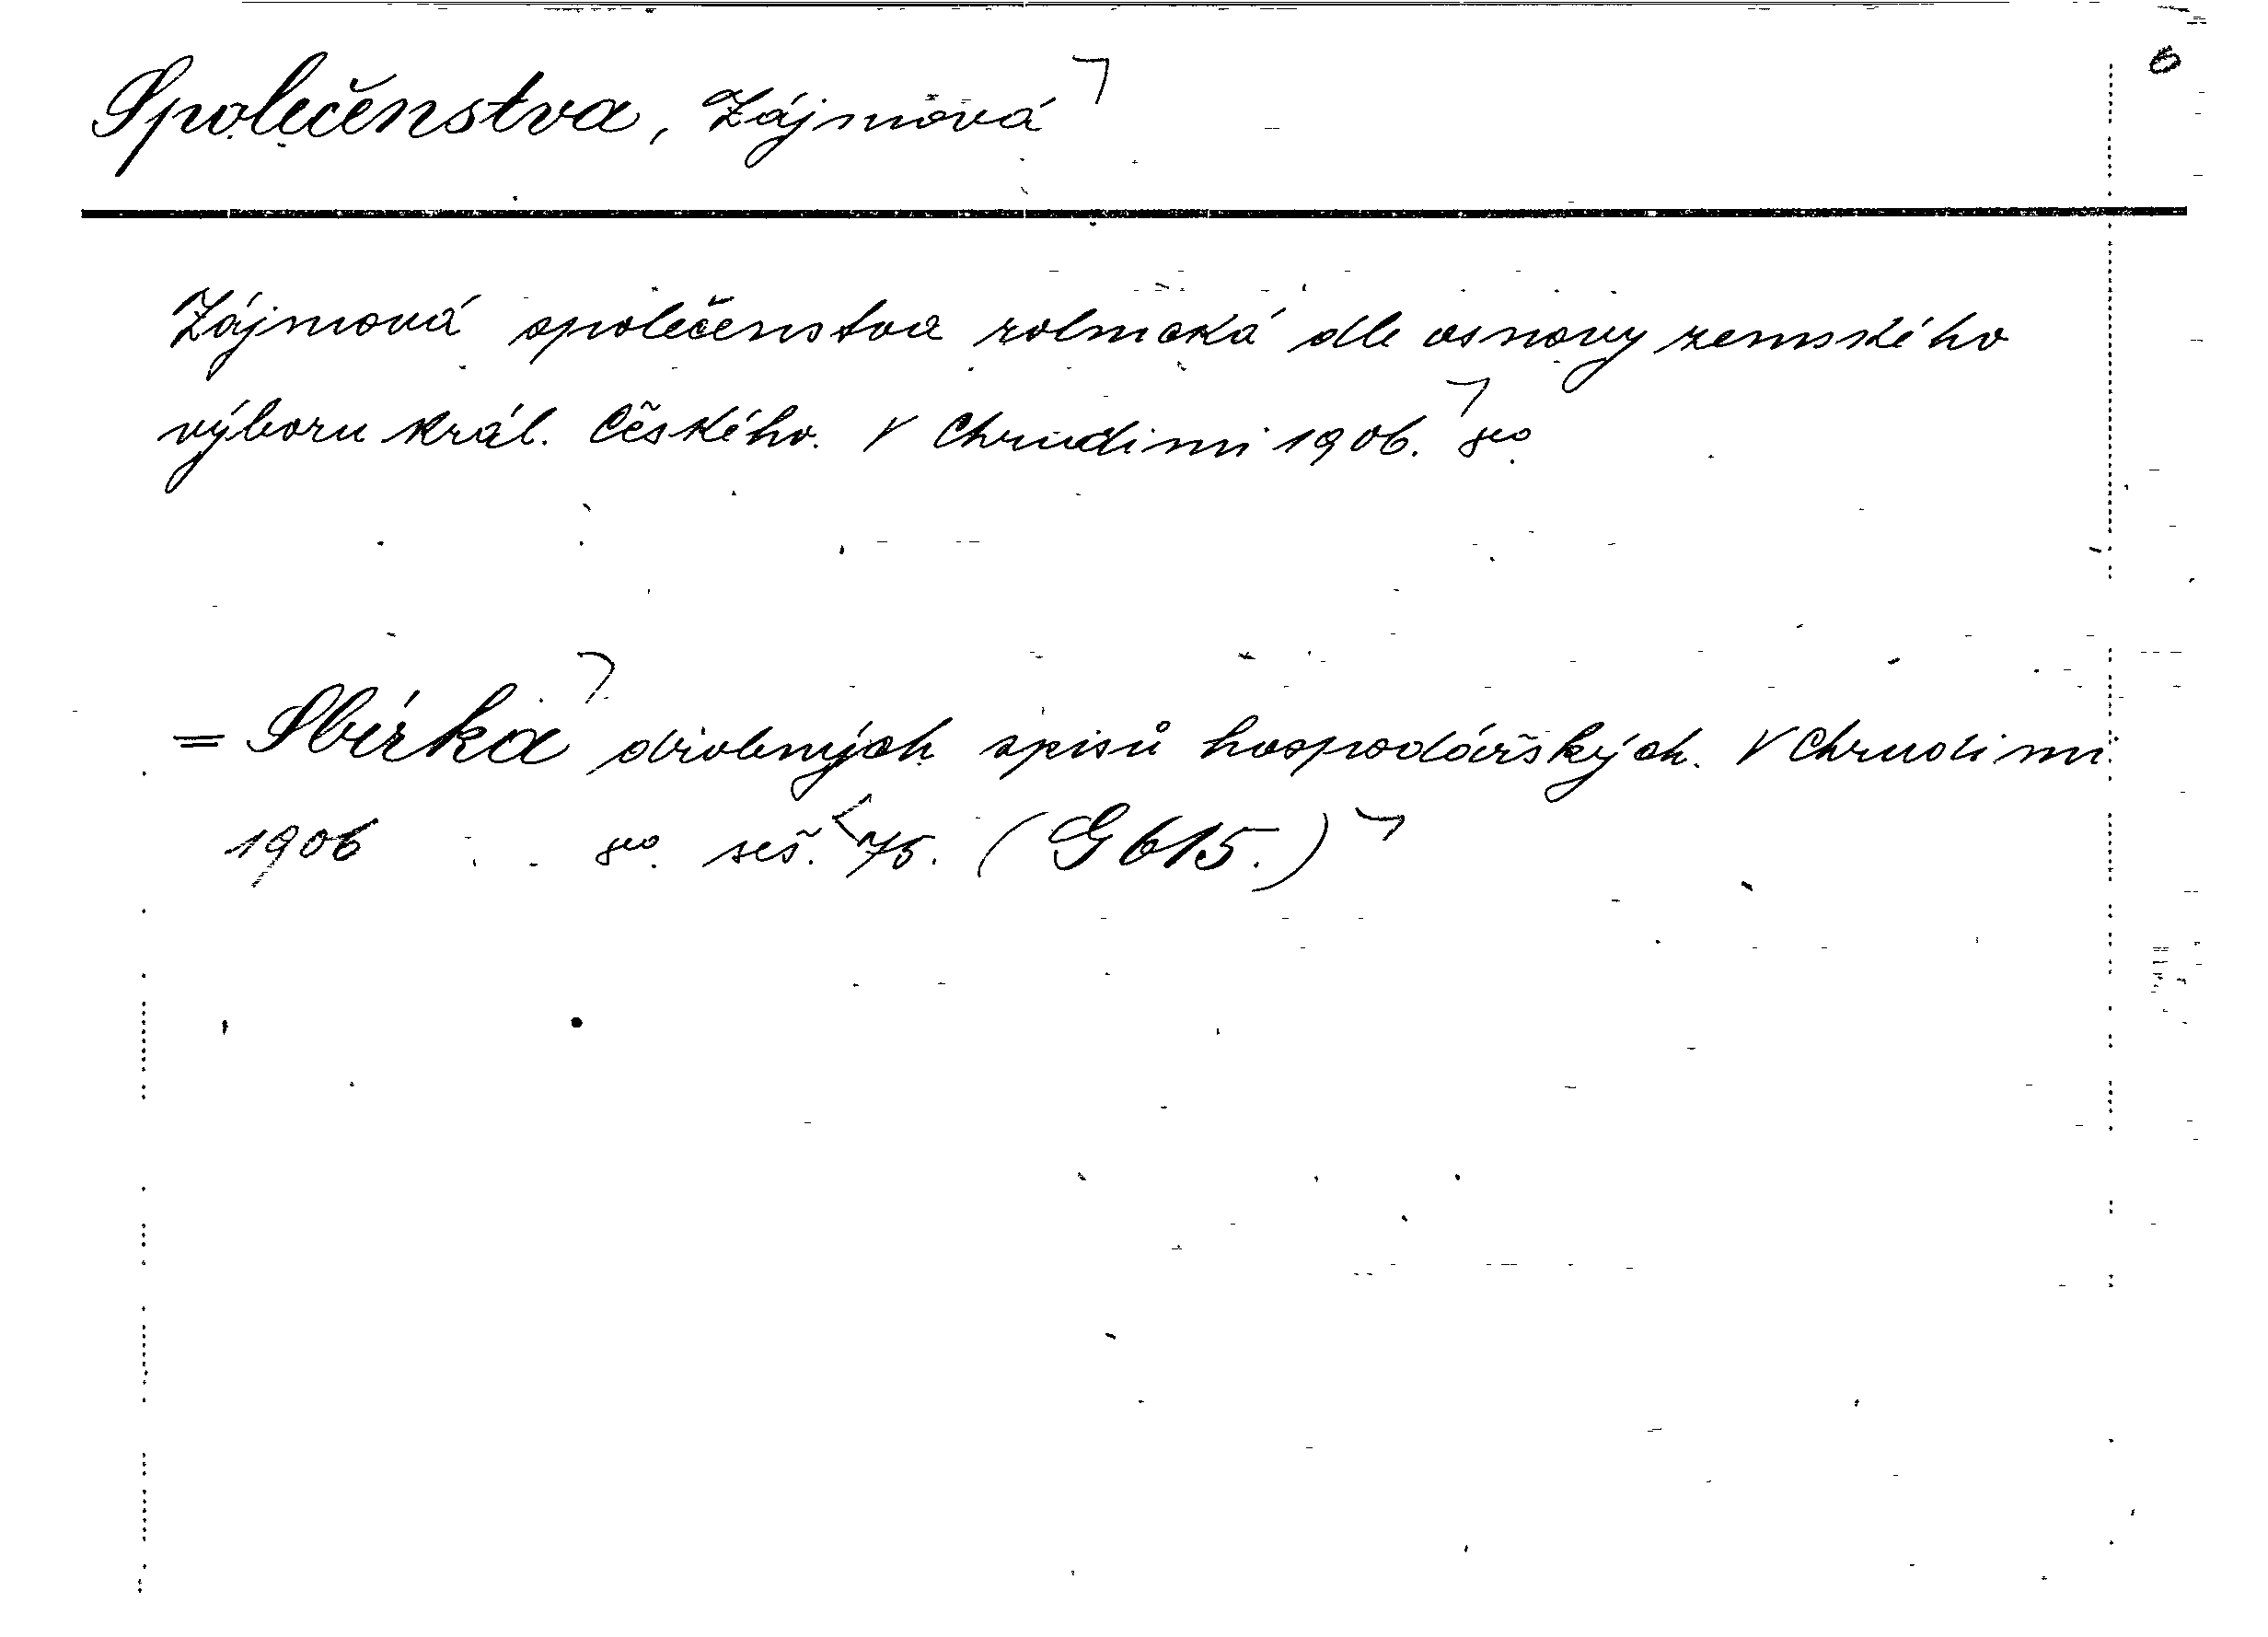 Společenstva, Zájmová
6
Zájmová společenstva rolnická dle osnovy zemského
výboru král. Českého. V Chrudimi 1906. 8º.
= Sbírka drobných spisů hospodářských. V Chrudimi
1906 8º. seš. 75. (G 615.)